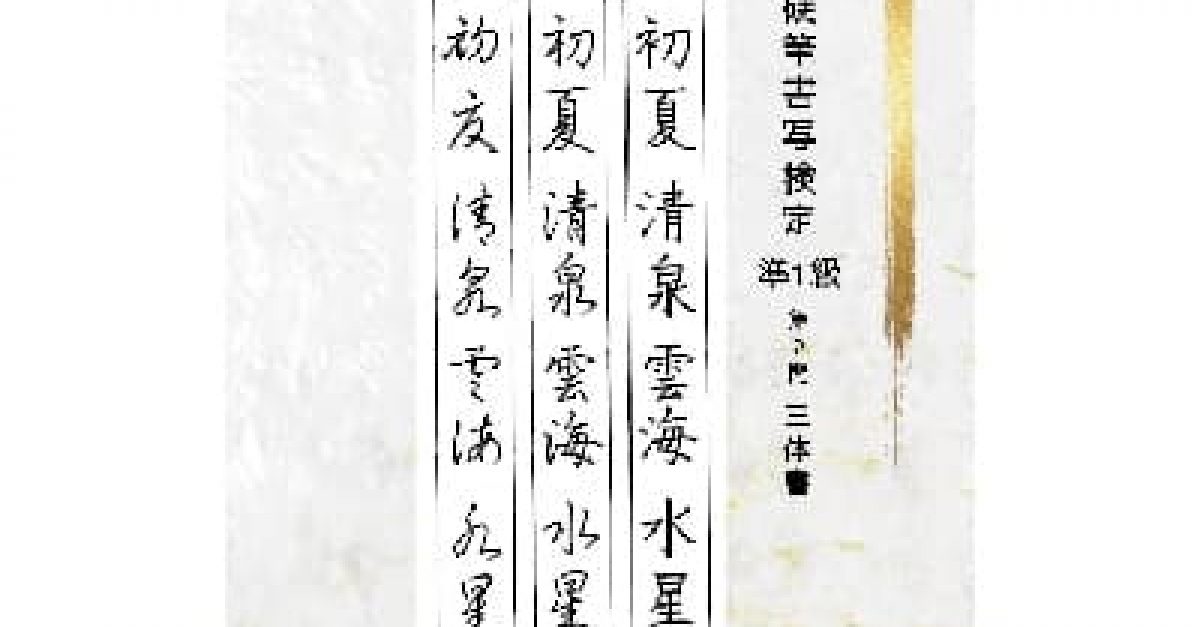 硬筆書写検定
準1級
三体書
初夏清泉雲海水星
初夏清泉雲海水星
初夏清泉雲海水星